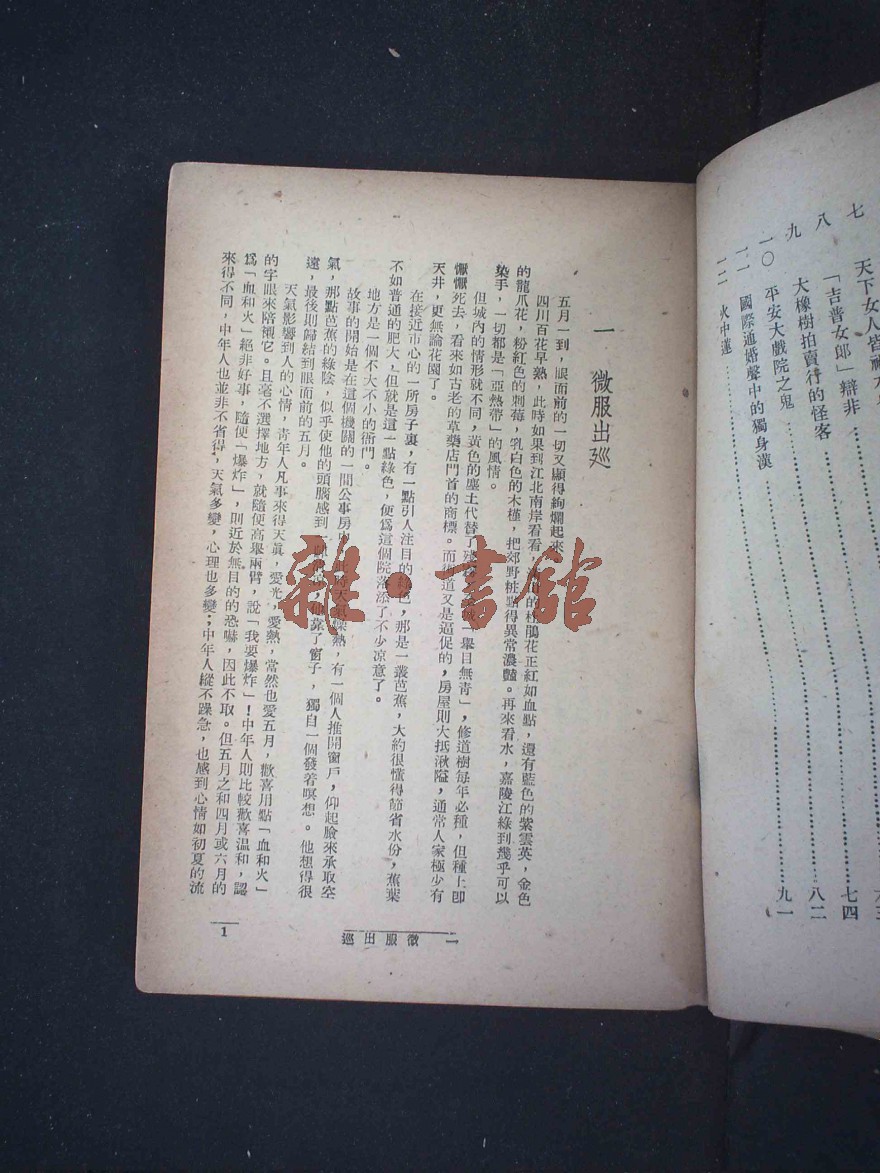 七 天下女人皆禍水
八 「吉普女郎」辯非……七四
九 大橡樹拍賣行的怪客……八二
一〇 平安大戲院之鬼……九一
一一 國際通婚聲中的獨身漢
一二 火中蓮
一 微服出巡
五月一到，眼面前的一切又顯得絢爛起來
四川百花早熟，此時如果到江北南岸看看，的杜鵑花正紅如血點，還有藍色的紫雲英，金色
的龍爪花，粉紅色的刺莓，乳白色的木槿，把郊野粧點得異常濃豔。再來看水，嘉陵江綠到幾乎可以
染手，一切都是「亞熱帶」的風情。
但城內的情形就不同，黃色的塵土代替了「舉目無青」，修道樹每年必種，但種上卽
懨懨死去，看來如古老的草藥店門首的商標。而街道又是逼促的，房屋則大抵湫隘，通常人家極少有
天井，更無論花園了。
在接近市心的一所房子裏，有一點引人注目的綠色，那是一叢芭蕉，大約很懂得節省水份，蕉葉
不如普通的肥大，但就是這一點綠色，便爲這個院落添了不少涼意了。
地方是一個不大不小的衙門。
故事的開始是在這個機關的一間公事房內，此時天氣燥熱，有一個人推開窗戶，仰起臉來承取空
氣，那點芭蕉的綠陰，似乎使他的頭腦感到一靠了窗子，獨自一個發着暝想。他想得很
遠，最後則歸結到眼面前的五月。
天氣影響到人的心情，青年人凡事來得天眞，愛光，愛熱，當然也愛五月，歡喜用點「血和火」
的字眼來陪襯它。且毫不選擇地方，就隨便高舉兩臂，說「我要爆炸」！中年人則比較歡喜温和，認
爲「血和火」絕非好事，隨便「爆炸」，則近於無目的的恐嚇，因此不取。但五月之和四月或六月的
來得不同，中年人也並非不省得，天氣多變，心理也多變；中年人縱不躁急，也感到心情如初夏的流
一 微服出巡
1
雜·書館